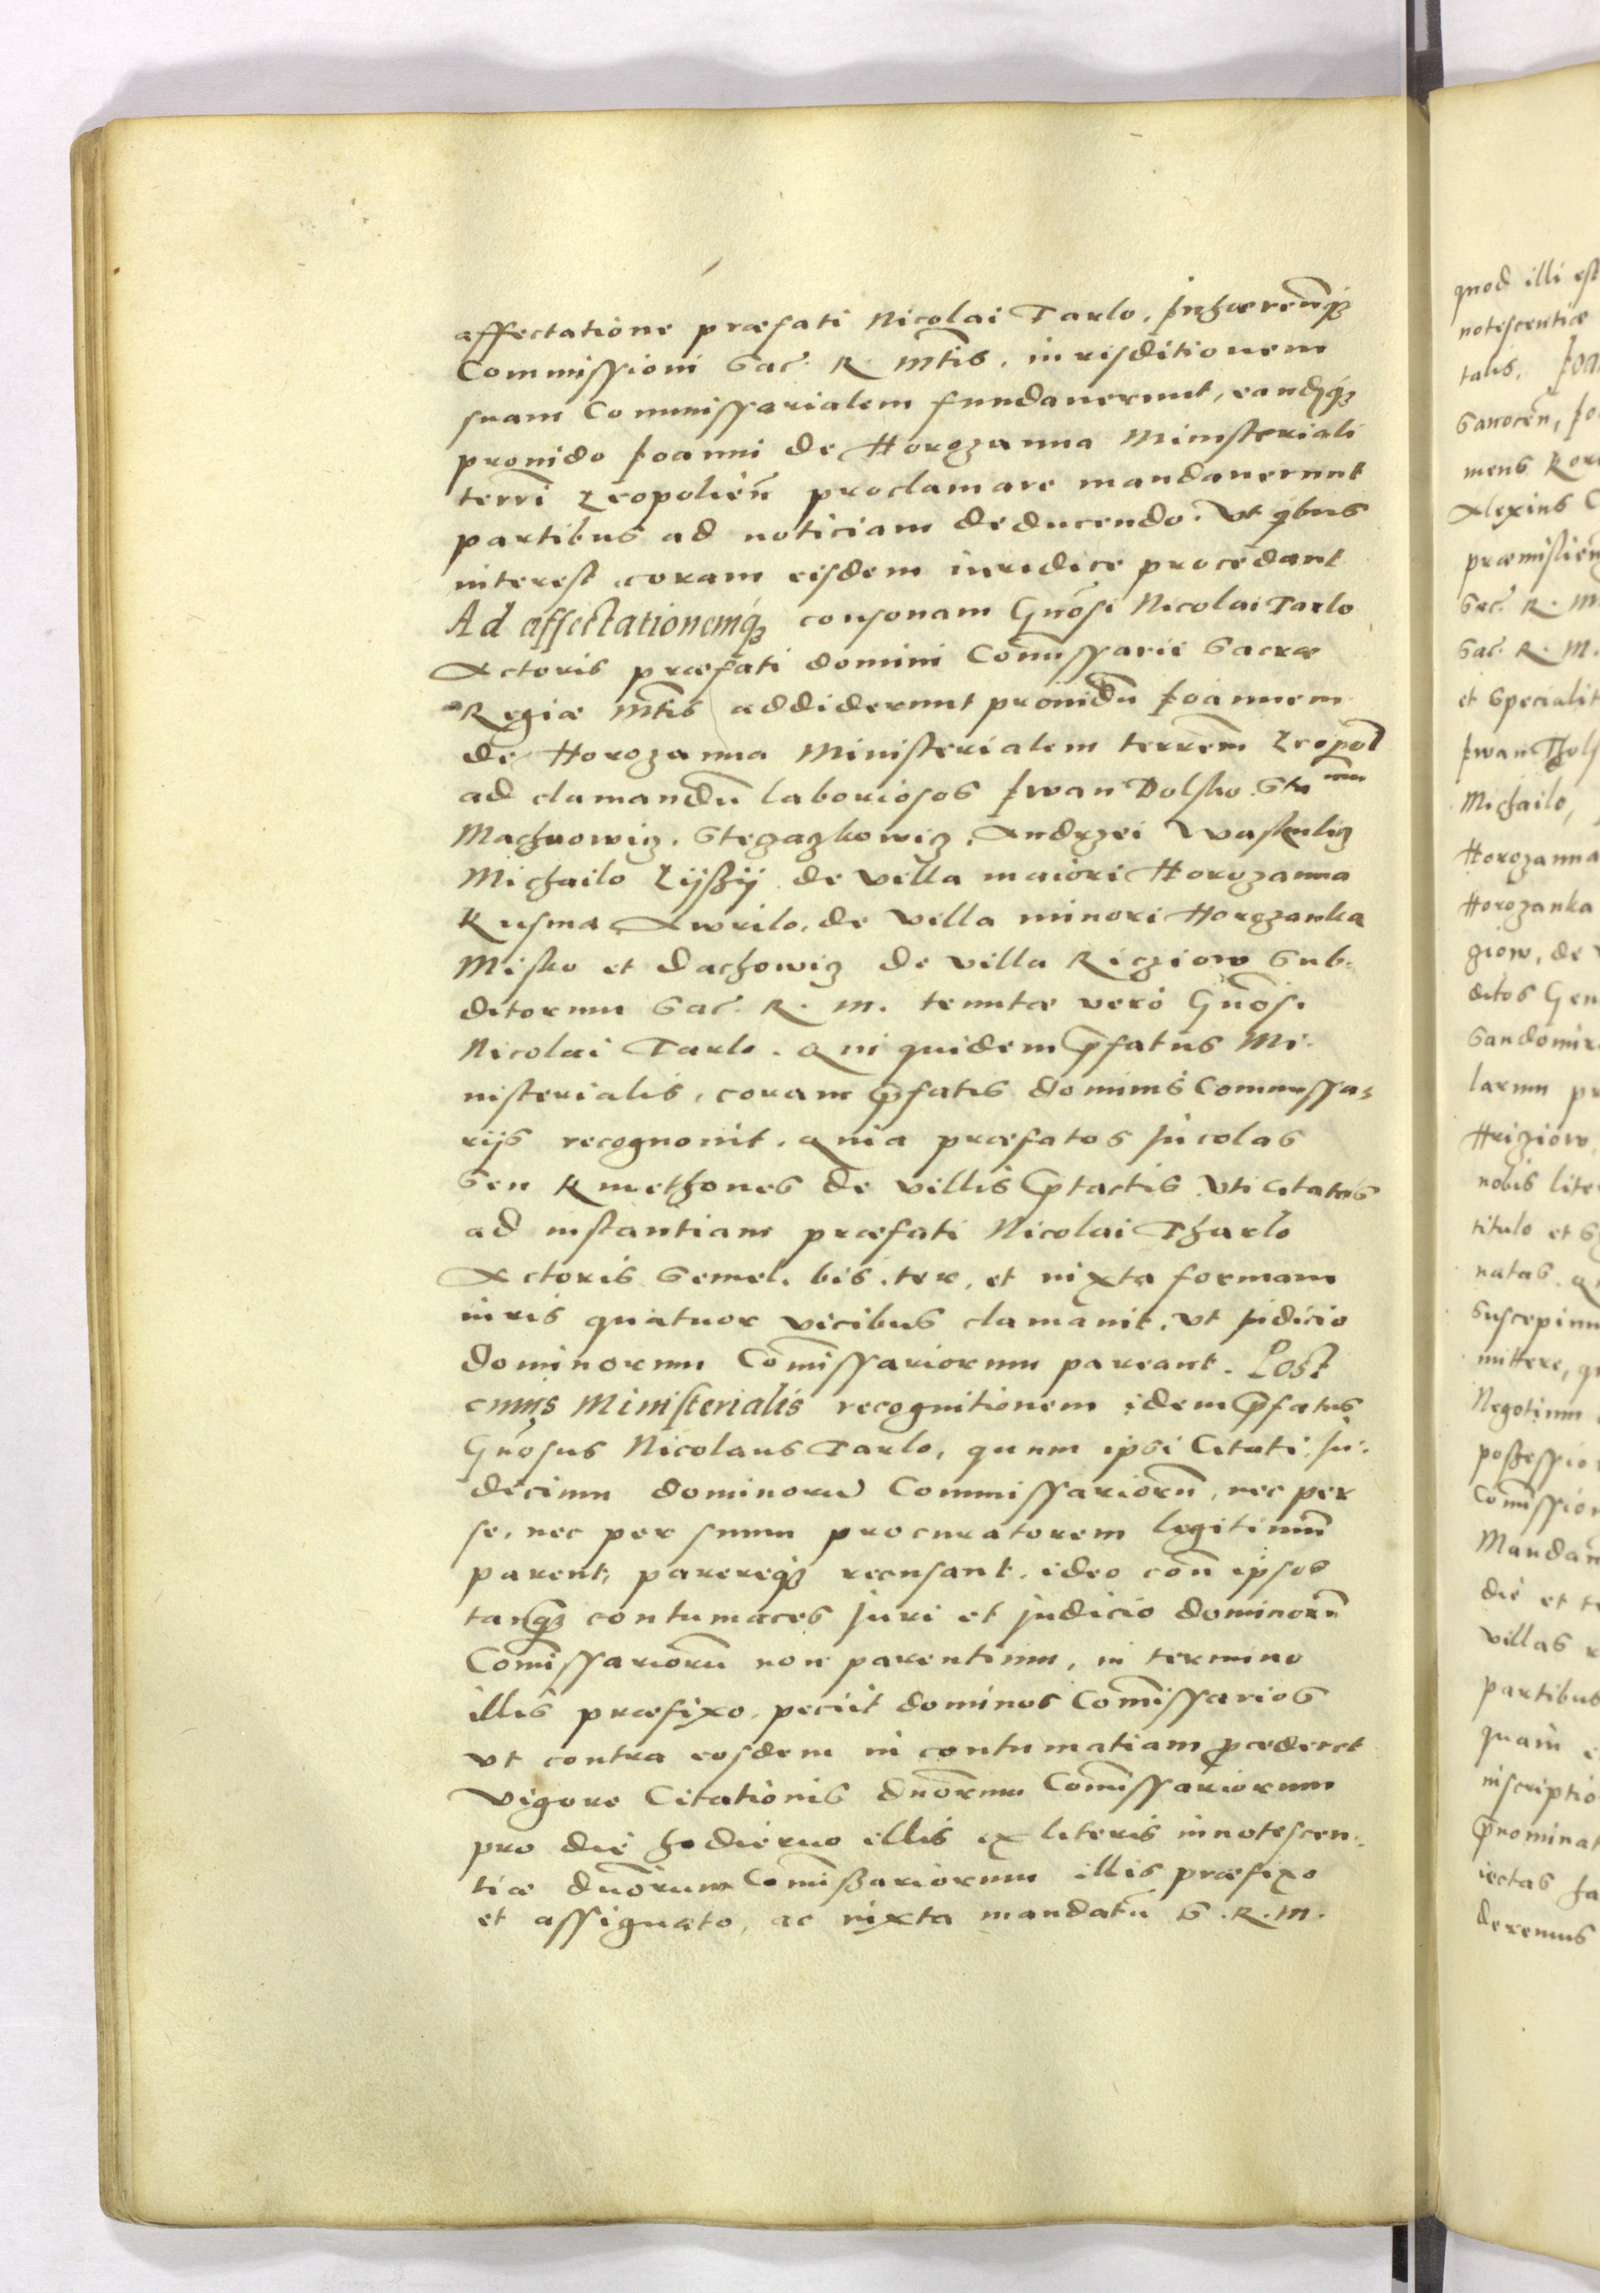 affectatione præfati Nicolai Tarlo. Inhærenq̃ꝫ
Commissioni Sac. R. Mtis. iurisditionem
suam Commissarialem fundauerunt, eandẽqꝫ
prouido Joanni de Horozanna Ministeriali
terrī Leopolieñ proclamare mandauerunt
partibus ad noticiam deducendo. Vt qbus
interest coram eisdem iuridice procedant
Ad affectationemqꝫ consonam Gñosi Nicolai Tarlo
Actoris præfati domini Com̃issarii Sacræ
Regiæ Mtis addiderunt prouidũ Joannem
de Horozanna Ministerialem terrem̃ Leopol
ad clamandũ laboriosos Iwan Dolsko
Machnowicz. Stezazkowicz. Andrzei Waskulicz
Michailo Lijszij de villa maiori Horozanna
Kusma Awrilo. de villa minori Horozanka
Misko et Dachowicz de villa Ricziow Sub-
ditorum Sac. R. M. tenutæ vero Gñosi
Nicolai Tarlo. Qui quidem p̃fatus Mi-
nisterialis, coram p̃fatis dominis Commissa-
rijs recognouit. Quia præfatos Incolas
Seu Kmethones de villis p̃tactis Vti Citatos
ad instantiam præfati Nicolai Tharlo
Actoris Semel. bis. ter. et iuxta formam
iuris quatuor vicibus clamauit. Vt Judicio
dominorum Com̃issariorum pareant. Post
cuius Ministerialis recognitionem idem p̃fatus
Gñosus Nicolaus Tarlo, quum ipsi Citati Ju-
dicium dominorũ Commissariorũ, nec per
se, nec per suum procuratorem legitimũ
parent, parereqꝫ recusant. ideo coñ ipsos
tanqꝫ contumaces Juri et judicio dominorũ
Com̃issariorũ non parentium, in termino
illis præfixo, peciit dominos Com̃issarios
Vt contra eosdem in contumatiam p̃cæderet
Vigore Citationis dñorum Com̃issariorum
pro die hodierno illis ex literis innotescen-
tiæ dñorum Com̃iszariorum illis præfixo
et assignato, ac iuxta mandatũ S. R. M.
quod illi est
notescentiæ
talis.
Sanoceñ,
mens
Alexius
Sac. R. M.
Sac. R. M.
et Specialit
Iwan
Michailo,
Horozanna
Horozanka
ziow, de
ditos Gen
Sandomir
larum
nobis
titulo et
natas
Suscepim
mittere,
Negotium
Mandam
die et
villas
partibus
quam
inscriptio
deremus